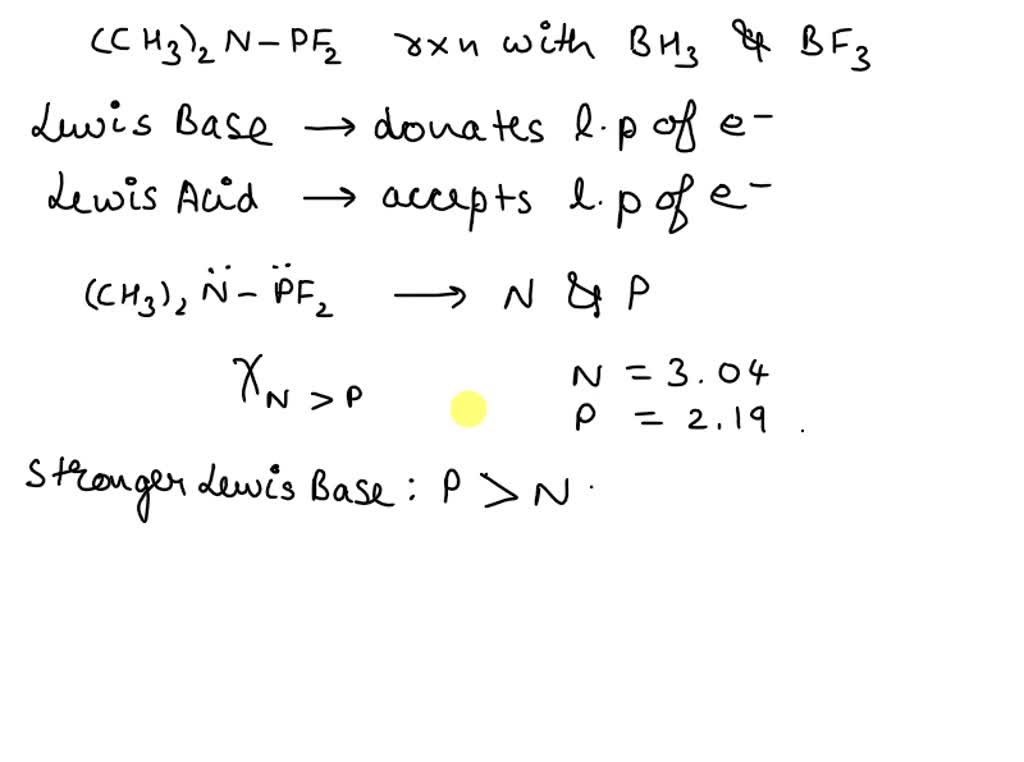 (CH₃)₂ N – PF₂ rxn with BH₃ & BF₃
Lewis Base → donates l.p of e⁻
Lewis Acid → accepts l.p of e⁻
(CH₃)₂ N̈ – P̈F₂ → N & P
χ N > P N = 3.04
P = 2.19 .
Stronger Lewis Base : P > N .